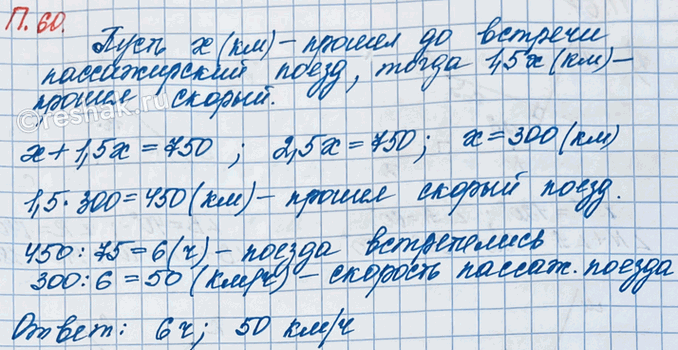 П. 60.
Пусть x (км) – прошел до встречи
пассажирский поезд, тогда 1,5x (км) –
прошел скорый.
x + 1,5x = 750 ; 2,5x = 750 ; x = 300 (км)
1,5 · 300 = 450 (км) – прошел скорый поезд.
450 : 75 = 6 (ч) – поезда встретились
300 : 6 = 50 (км/ч) – скорость пассаж. поезда
Ответ: 6 ч ; 50 км/ч
reshak.ru